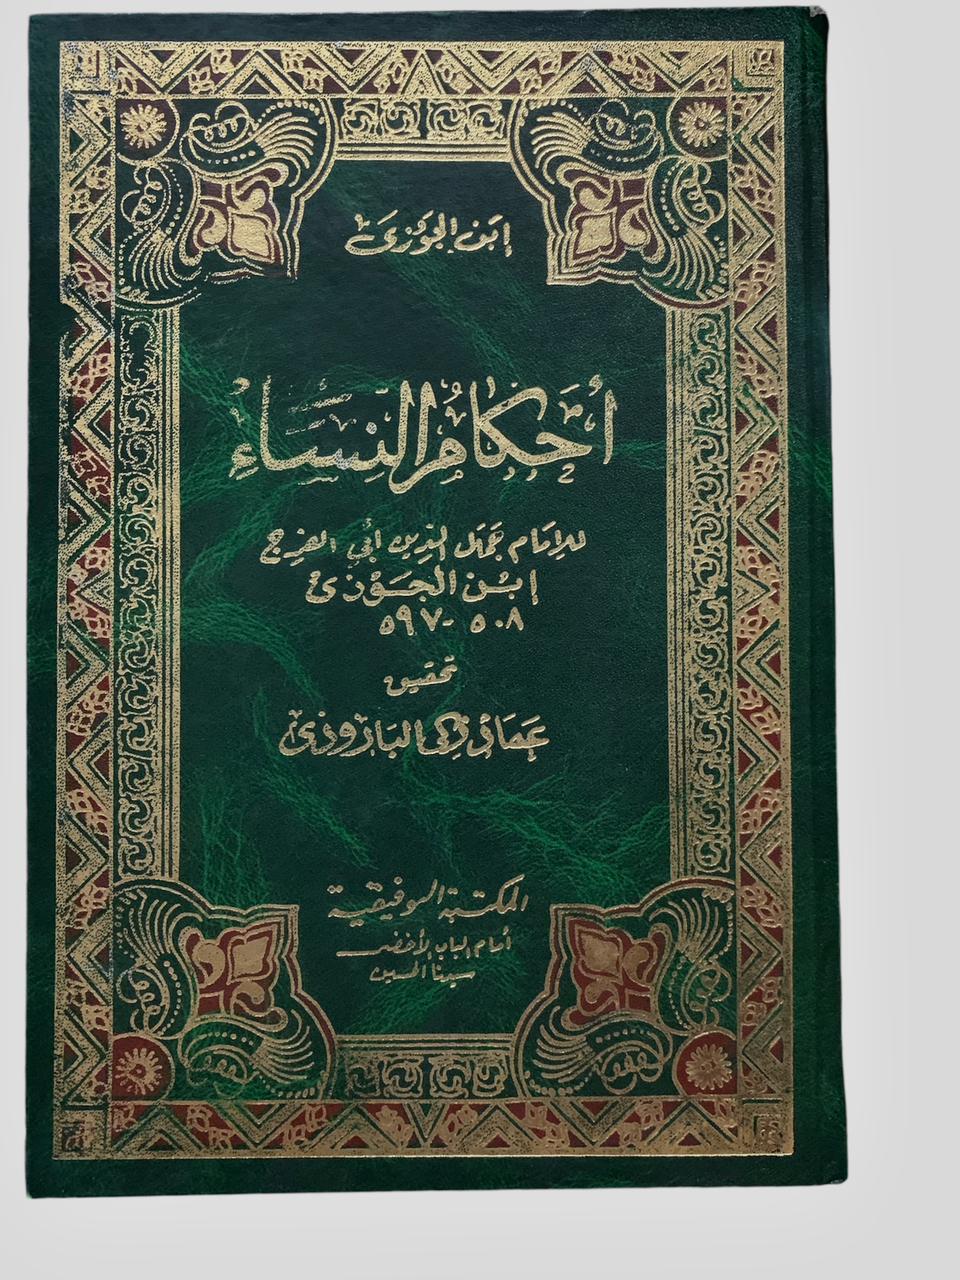 ابن الجوزى
أحكام النساء
للامام جمال الدين أبي الفرج
ابن الجوزى
٥٠٨ - ٥٩٧
تحقيق
عماد زكى البارودى
المكتبة التوفيقية
أمام الباب الأخضر
سيدنا الحسين